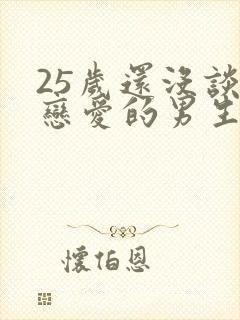 25歲還沒談
戀愛的男生
懷伯恩